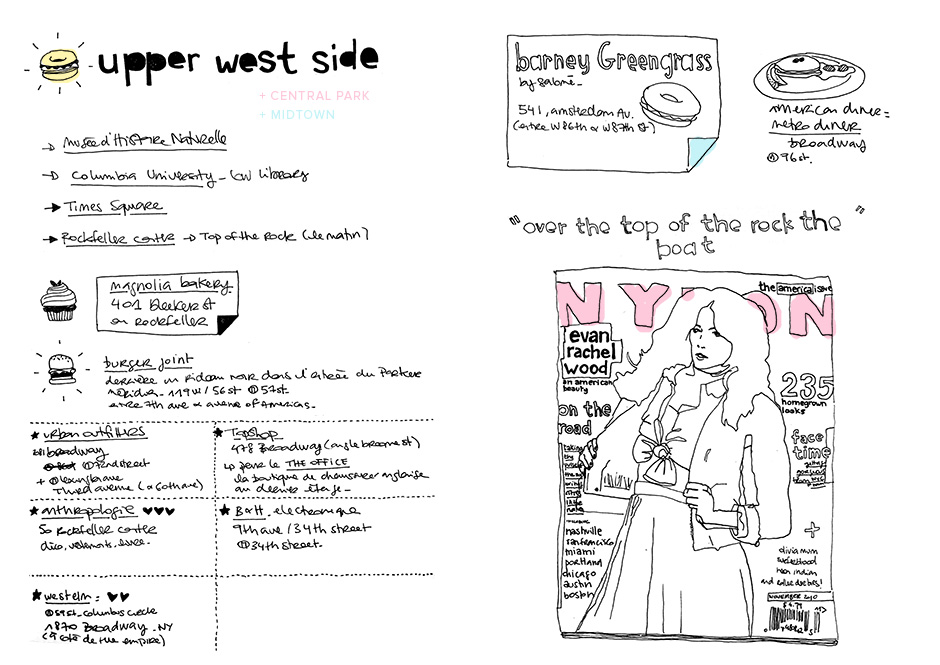 upper west side
+ CENTRAL PARK
+ MIDTOWN
→ Musée d'Histoire Naturelle
→ Columbia University - Low Library
→ Times Square
→ Rockfeller center → Top of the Rock (le matin)
magnolia bakery
401 bleeker st
ou Rockfeller
burger joint
derrière un rideau noir dans l'entrée du Parker
Méridien - 119W / 56 st Ⓜ 57st.
entre 7th ave & avenue of Americas.
★ urban outfitters
broadway
Ⓜ 72nd street
Third avenue (& 60th ave)
★ Topshop
478 Broadway (angle broome st)
↳ pour le THE OFFICE
la boutique de chausseur anglaise
au dernier étage -
★ anthropologie ♥♥♥
50 Rockfeller center
déco, vêtements,
★ B&H. electronique
9th ave / 34th street
Ⓜ 34th street.
★ westelm = ♥♥
Ⓜ 59 st - columbus circle
1870 Broadway - NY
barney Greengrass
by Salomé -
541, amsterdam Av.
(entre W86th & W87th St)
american diner =
metro diner
broadway
Ⓜ 96 st.
"over the top of the rock the
boat"
the america issue
NYLON
evan
rachel
wood
an american
beauty
235
homegrown
looks
on the
road
face
time
taking
the
nashville
san francisco
miami
portland
chicago
austin
boston
+
olivia munn
NOVEMBER 2010